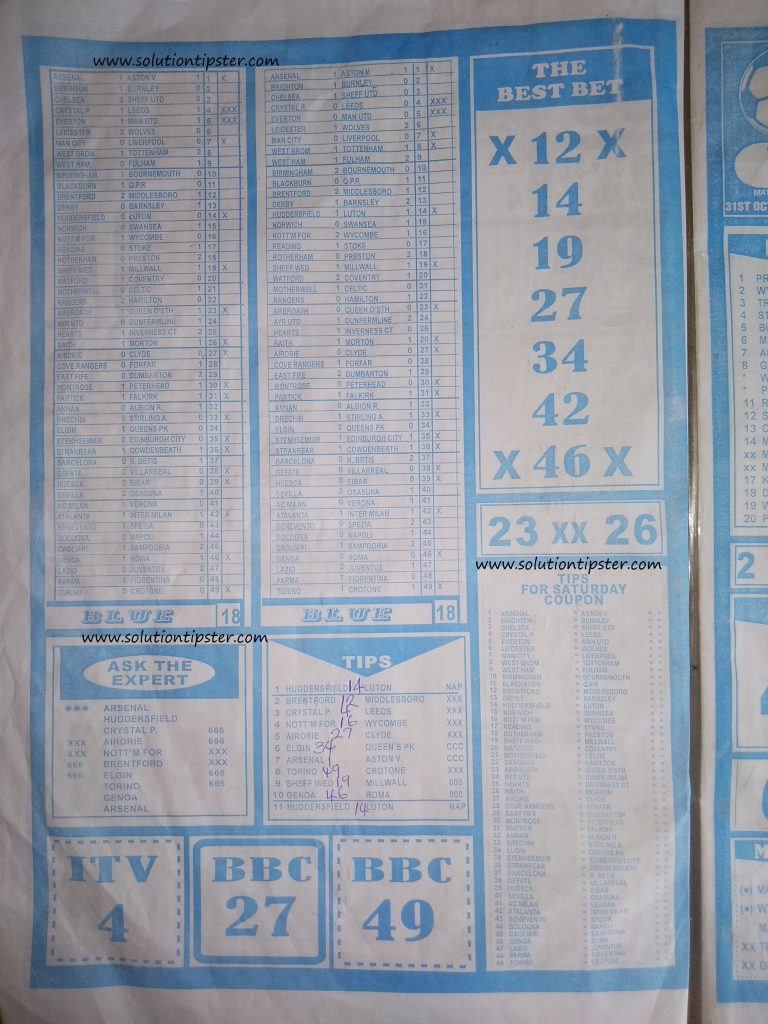 www.solutiontipster.com
ARSENAL 1 ASTON V. 1 1 X
BRIGHTON 1 BURNLEY 0 2
CHELSEA 2 SHEFF UTD 0 3
CRYSTAL P. 1 LEEDS 1 4 XXX
EVERTON 1 MAN UTD 1 5 XXX
LEICESTER 2 WOLVES 0 6
MAN CITY 0 LIVERPOOL 0 7 X
WEST BROM 1 TOTTENHAM 2 8
WEST HAM 0 FULHAM 1 9
BIRMINGHAM 1 BOURNEMOUTH 0 10
BLACKBURN 1 Q.P.R 0 11
BRENTFORD 2 MIDDLESBORO 1 12
DERBY 0 BARNSLEY 1 13
HUDDERSFIELD 0 LUTON 0 14 X
NORWICH 0 SWANSEA 1 15
NOTT'M FOR 1 WYCOMBE 0 16
READING 0 STOKE 1 17
ROTHERHAM 0 PRESTON 2 18
SHEFF WED 1 MILLWALL 1 19 X
WATFORD 1 COVENTRY 0 20
MOTHERWELL 0 CELTIC 1 21
RANGERS 2 HAMILTON 0 22
ARBROATH 1 QUEEN O'STH 1 23 X
AYR UTD 0 DUNFERMLINE 1 24
HEARTS 1 INVERNESS CT 2 25
RAITH 1 MORTON 1 26 X
AIRDRIE 0 CLYDE 0 27 X
COVE RANGERS 0 FORFAR 1 28
EAST FIFE 0 DUMBARTON 2 29
MONTROSE 1 PETERHEAD 1 30 X
PARTICK 1 FALKIRK 1 31 X
ANNAN 0 ALBION R. 1 32
BRECHIN 0 STIRLING A. 0 33 X
ELGIN 1 QUEENS PK 0 34
STENHSEMUIR 0 EDINBURGH CITY 0 35 X
STRANREAR 1 COWDENBEATH 1 36 X
BARCELONA 0 R. BETIS 1 37
GEFATE 0 VILLARREAL 0 38 X
HUESCA 0 EIBAR 0 39 X
SEVILLA 2 OSASUNA 1 40
AC MILAN 1 VERONA 0 41
ATALANTA 1 INTER MILAN 1 42 X
BENEVENTO 1 SPEZIA 0 43
BOLOGNA 0 NAPOLI 1 44
CAGLIARI 1 SAMPOORIA 2 45
GENOA 1 ROMA 1 46 X
LAZIO 0 JUVENTUS 2 47
PARMA 1 FIORENTINA 0 48
TORINO 0 CROTONE 0 49 X
BLUE 18
ARSENAL 1 ASTON V. 1 1 X
BRIGHTON 1 BURNLEY 0 2
CHELSEA 1 SHEFF UTD 0 3
CRYSTAL P. 0 LEEDS 0 4 XXX
EVERTON 0 MAN UTD 0 5 XXX
LEICESTER 1 WOLVES 2 6
MAN CITY 0 LIVERPOOL 0 7 X
WEST BROM 1 TOTTENHAM 1 8 X
WEST HAM 1 FULHAM 2 9
BIRMINGHAM 2 BOURNEMOUTH 0 10
BLACKBURN 0 Q.P.R 1 11
BRENTFORD 2 MIDDLESBORO 1 12
DERBY 1 BARNSLEY 2 13
HUDDERSFIELD 1 LUTON 1 14 X
NORWICH 0 SWANSEA 1 15
NOTT'M FOR 2 WYCOMBE 1 16
READING 1 STOKE 0 17
ROTHERHAM 0 PRESTON 2 18
SHEFF WED 1 MILLWALL 1 19 X
WATFORD 2 COVENTRY 1 20
MOTHERWELL 0 CELTIC 1 21
RANGERS 0 HAMILTON 1 22
ARBROATH 0 QUEEN O'STH 0 23 X
AYR UTD 1 DUNFERMLINE 2 24
HEARTS 0 INVERNESS CT 1 25
RAITH 1 MORTON 1 26 X
AIRDRIE 0 CLYDE 0 27 X
COVE RANGERS 1 FORFAR 0 28
EAST FIFE 2 DUMBARTON 1 29
MONTROSE 0 PETERHEAD 0 30 X
PARTICK 1 FALKIRK 1 31 X
ANNAN 0 ALBION R. 1 32
BRECHIN 1 STIRLING A. 1 33 X
ELGIN 2 QUEENS PK 0 34
STENHSEMUIR 1 EDINBURGH CITY 1 35 X
STRANREAR 1 COWDENBEATH 1 36 X
BARCELONA 0 R. BETIS 2 37
GEFATE 0 VILLARREAL 0 38 X
HUESCA 0 EIBAR 0 39 X
SEVILLA 2 OSASUNA 1 40
AC MILAN 0 VERONA 1 41
ATALANTA 1 INTER MILAN 1 42 X
BENEVENTO 0 SPEZIA 2 43
BOLOGNA 0 NAPOLI 1 44
CAGLIARI 1 SAMPOORIA 2 45
GENOA 0 ROMA 0 46 X
LAZIO 2 JUVENTUS 1 47
PARMA 1 FIORENTINA 0 48
TORINO 1 CROTONE 1 49 X
BLUE 18
THE
BEST BET
X 12 X
14
19
27
34
42
X 46 X
23 XX 26
www.solutiontipster.com
TIPS
FOR SATURDAY
COUPON
1 ARSENAL ASTON V.
2 BRIGHTON BURNLEY
3 CHELSEA SHEFF UTD
4 CRYSTAL P. LEEDS
5 EVERTON MAN UTD
6 LEICESTER WOLVES
7 MAN CITY LIVERPOOL
8 WEST BROM TOTTENHAM
9 WEST HAM FULHAM
10 BIRMINGHAM BOURNEMOUTH
11 BLACKBURN Q.P.R
12 BRENTFORD MIDDLESBORO
13 DERBY BARNSLEY
14 HUDDERSFIELD LUTON
15 NORWICH SWANSEA
16 NOTT'M FOR WYCOMBE
17 READING STOKE
18 ROTHERHAM PRESTON
19 SHEFF WED MILLWALL
20 WATFORD COVENTRY
21 MOTHERWELL CELTIC
22 RANGERS HAMILTON
23 ARBROATH QUEEN O'STH
24 AYR UTD DUNFERMLINE
25 HEARTS INVERNESS CT
26 RAITH MORTON
27 AIRDRIE CLYDE
28 COVE RANGERS FORFAR
29 EAST FIFE DUMBARTON
30 MONTROSE PETERHEAD
31 PARTICK FALKIRK
32 ANNAN ALBION R.
33 BRECHIN STIRLING A.
34 ELGIN QUEENS PK
35 STENHSEMUIR EDINBURGH CITY
36 STRANREAR COWDENBEATH
37 BARCELONA R. BETIS
38 GEFATE VILLARREAL
39 HUESCA EIBAR
40 SEVILLA OSASUNA
41 AC MILAN VERONA
42 ATALANTA INTER MILAN
43 BENEVENTO SPEZIA
44 BOLOGNA NAPOLI
45 CAGLIARI SAMPOORIA
46 GENOA ROMA
47 LAZIO JUVENTUS
48 PARMA FIORENTINA
49 TORINO CROTONE
www.solutiontipster.com
ASK THE
EXPERT
*** ARSENAL
HUDDERSFIELD
CRYSTAL P. 666
XXX AIRDRIE 666
XXX NOTT'M FOR XXX
666 BRENTFORD XXX
666 ELGIN 666
TORINO 666
GENOA
ARSENAL
TIPS
1 HUDDERSFIELD 14 LUTON NAP
2 BRENTFORD 12 MIDDLESBORO XXX
3 CRYSTAL P. 4 LEEDS XXX
4 NOTT'M FOR 16 WYCOMBE XXX
5 AIRDRIE 27 CLYDE XXX
6 ELGIN 34 QUEEN'S PK CCC
7 ARSENAL 1 ASTON V CCC
8 TORINO 49 CROTONE XXX
9 SHEFF WED 19 MILLWALL 000
10 GENOA 46 ROMA 000
11 HUDDERSFIELD 14 LUTON NAP
ITV
4
BBC
27
BBC
49
31ST OC